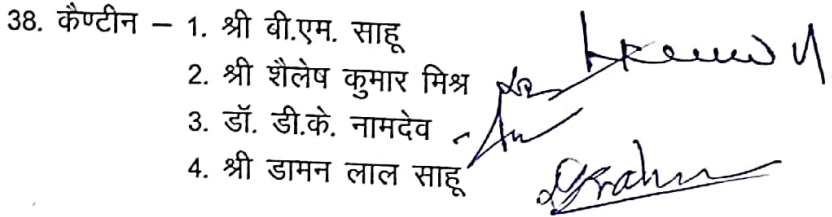 38. कैण्टीन – 1. श्री बी.एम. साहू
2. श्री शैलेष कुमार मिश्र
3. डॉ. डी.के. नामदेव
4. श्री डामन लाल साहू